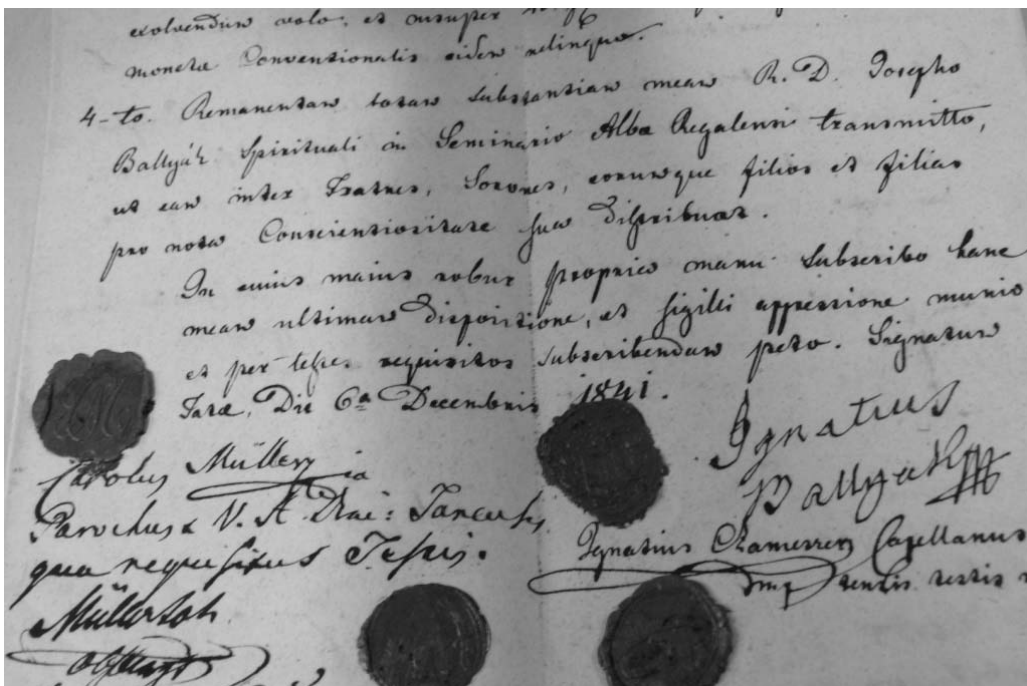 exolvendum volo; et insuper
moneta Conventionalis eidem relinquo.
4-to. Remanentem totam substantiam meam R. D. Josepho
Ballyák Spirituali in Seminario Alba Regalensi transmitto,
ut eam inter Fratres, Sorores, eorumque filios et filias
pro nota Conscientiositate sua distribuat.
In cuius maius robur propria manu subscribo hanc
meam ultimam dispositione, et sigilli appressione munio
et per testes requisitos subscribendam peto. Signatum
Tatæ, Die 6a Decembris 1841.
Ignatius
Ballyak
Carolus Müller
Parochus & V. A. Diac: Tatensis
qua requisitus Testis.
Ignatius Chamerren Capellanus
testis